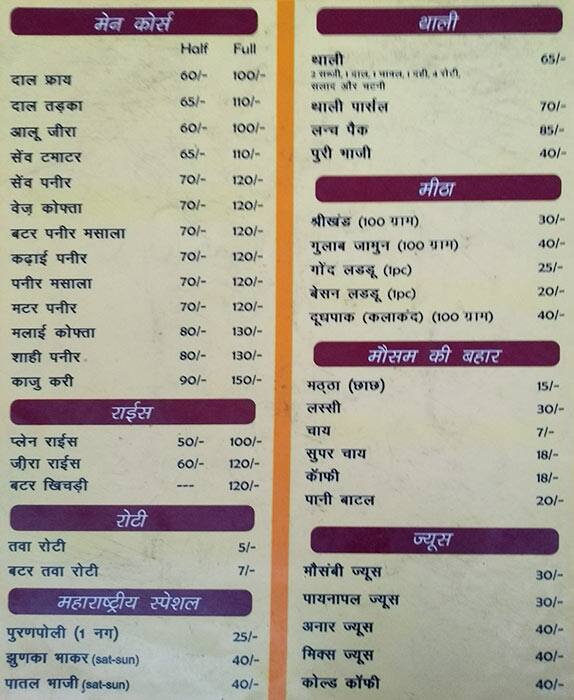 मेन कोर्स
Half Full
दाल फ्राय 60/- 100/-
दाल तड़का 65/- 110/-
आलू जीरा 60/- 100/-
सेंव टमाटर 65/- 110/-
सेंव पनीर 70/- 120/-
वेज़ कोफ्ता 70/- 120/-
बटर पनीर मसाला 70/- 120/-
कढ़ाई पनीर 70/- 120/-
पनीर मसाला 70/- 120/-
मटर पनीर 70/- 120/-
मलाई कोफ्ता 80/- 130/-
शाही पनीर 80/- 130/-
काजु करी 90/- 150/-
राईस
प्लेन राईस 50/- 100/-
जी़रा राईस 60/- 120/-
बटर खिचड़ी --- 120/-
रोटी
तवा रोटी 5/-
बटर तवा रोटी 7/-
महाराष्ट्रीय स्पेशल
पुरणपोली (1 नग) 25/-
झुणका भाकर (sat-sun) 40/-
पातल भाजी (sat-sun) 40/-
थाली
थाली 65/-
2 सब्जी, 1 दाल, 1 चावल, 1 दही, 4 रोटी,
सलाद और चटनी
थाली पार्सल 70/-
लन्च पैक 85/-
पुरी भाजी 40/-
मीठा
श्रीखंड (100 ग्राम) 30/-
गुलाब जामुन (100 ग्राम) 40/-
गोंद लडडू (1pc) 25/-
बेसन लडडू (1pc) 20/-
दूधपाक (कलाकंद) (100 ग्राम) 40/-
मौसम की बहार
मठ्ठा (छाछ) 15/-
लस्सी 30/-
चाय 7/-
सुपर चाय 18/-
कॉफी 18/-
पानी बाटल 20/-
ज्यूस
मौसंबी ज्यूस 30/-
पायनापल ज्यूस 30/-
अनार ज्यूस 40/-
मिक्स ज्यूस 40/-
कोल्ड कॉफी 40/-